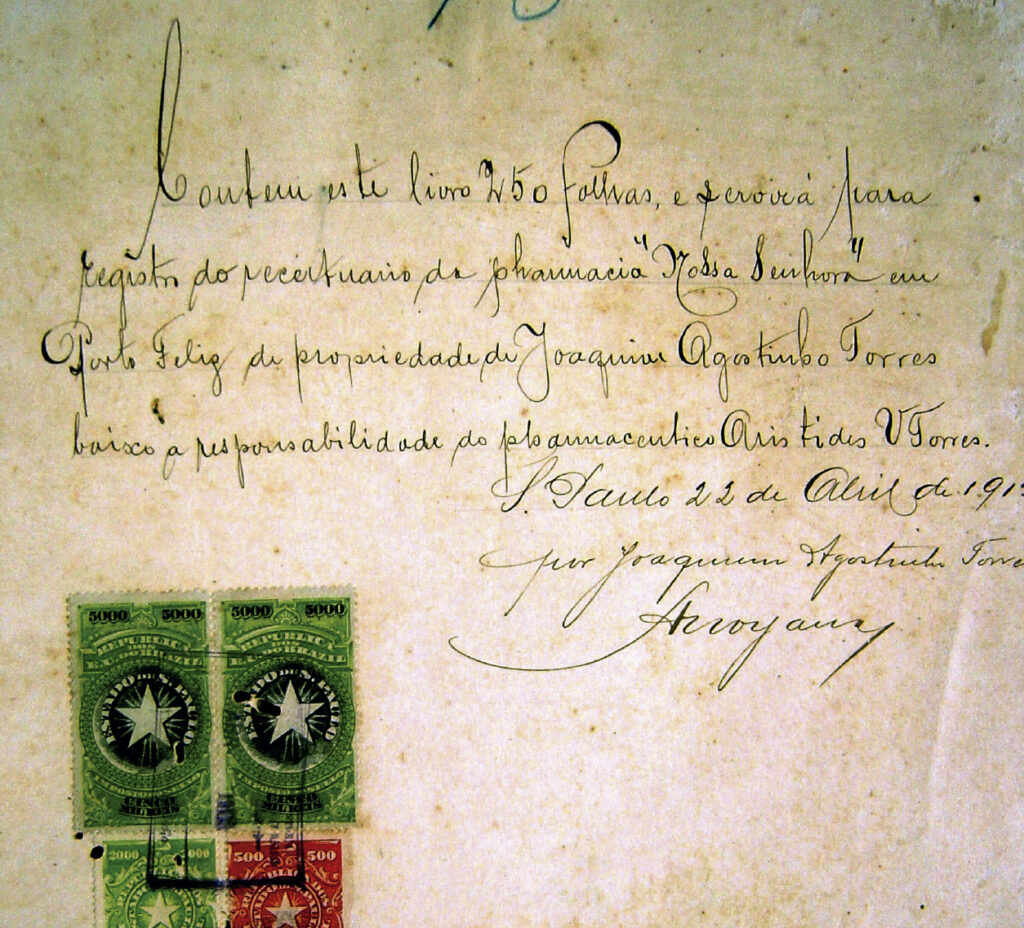 Contem este livro 250 folhas, e servirá para
registro do receituario da pharmacia "Nossa Senhora" em
Porto Feliz de propriedade de Joaquim Agostinho Torres
baixo a responsabilidade do pharmaceutico Aristides V Torres.
S. Paulo 22 de Abril de 191
por Joaquim Agostinho Torre
5000 5000 5000 5000
REPUBLICA DOS E.U. DO BRAZIL REPUBLICA DOS E.U. DO BRAZIL
ESTADO DE S. PAULO ESTADO DE S. PAULO
CINCO MIL REIS CINCO MIL REIS
2000 2000 500 500